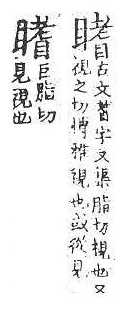 古文字又渠脂切視也又
視之切博雅視也或從見
巨脂切
見視也